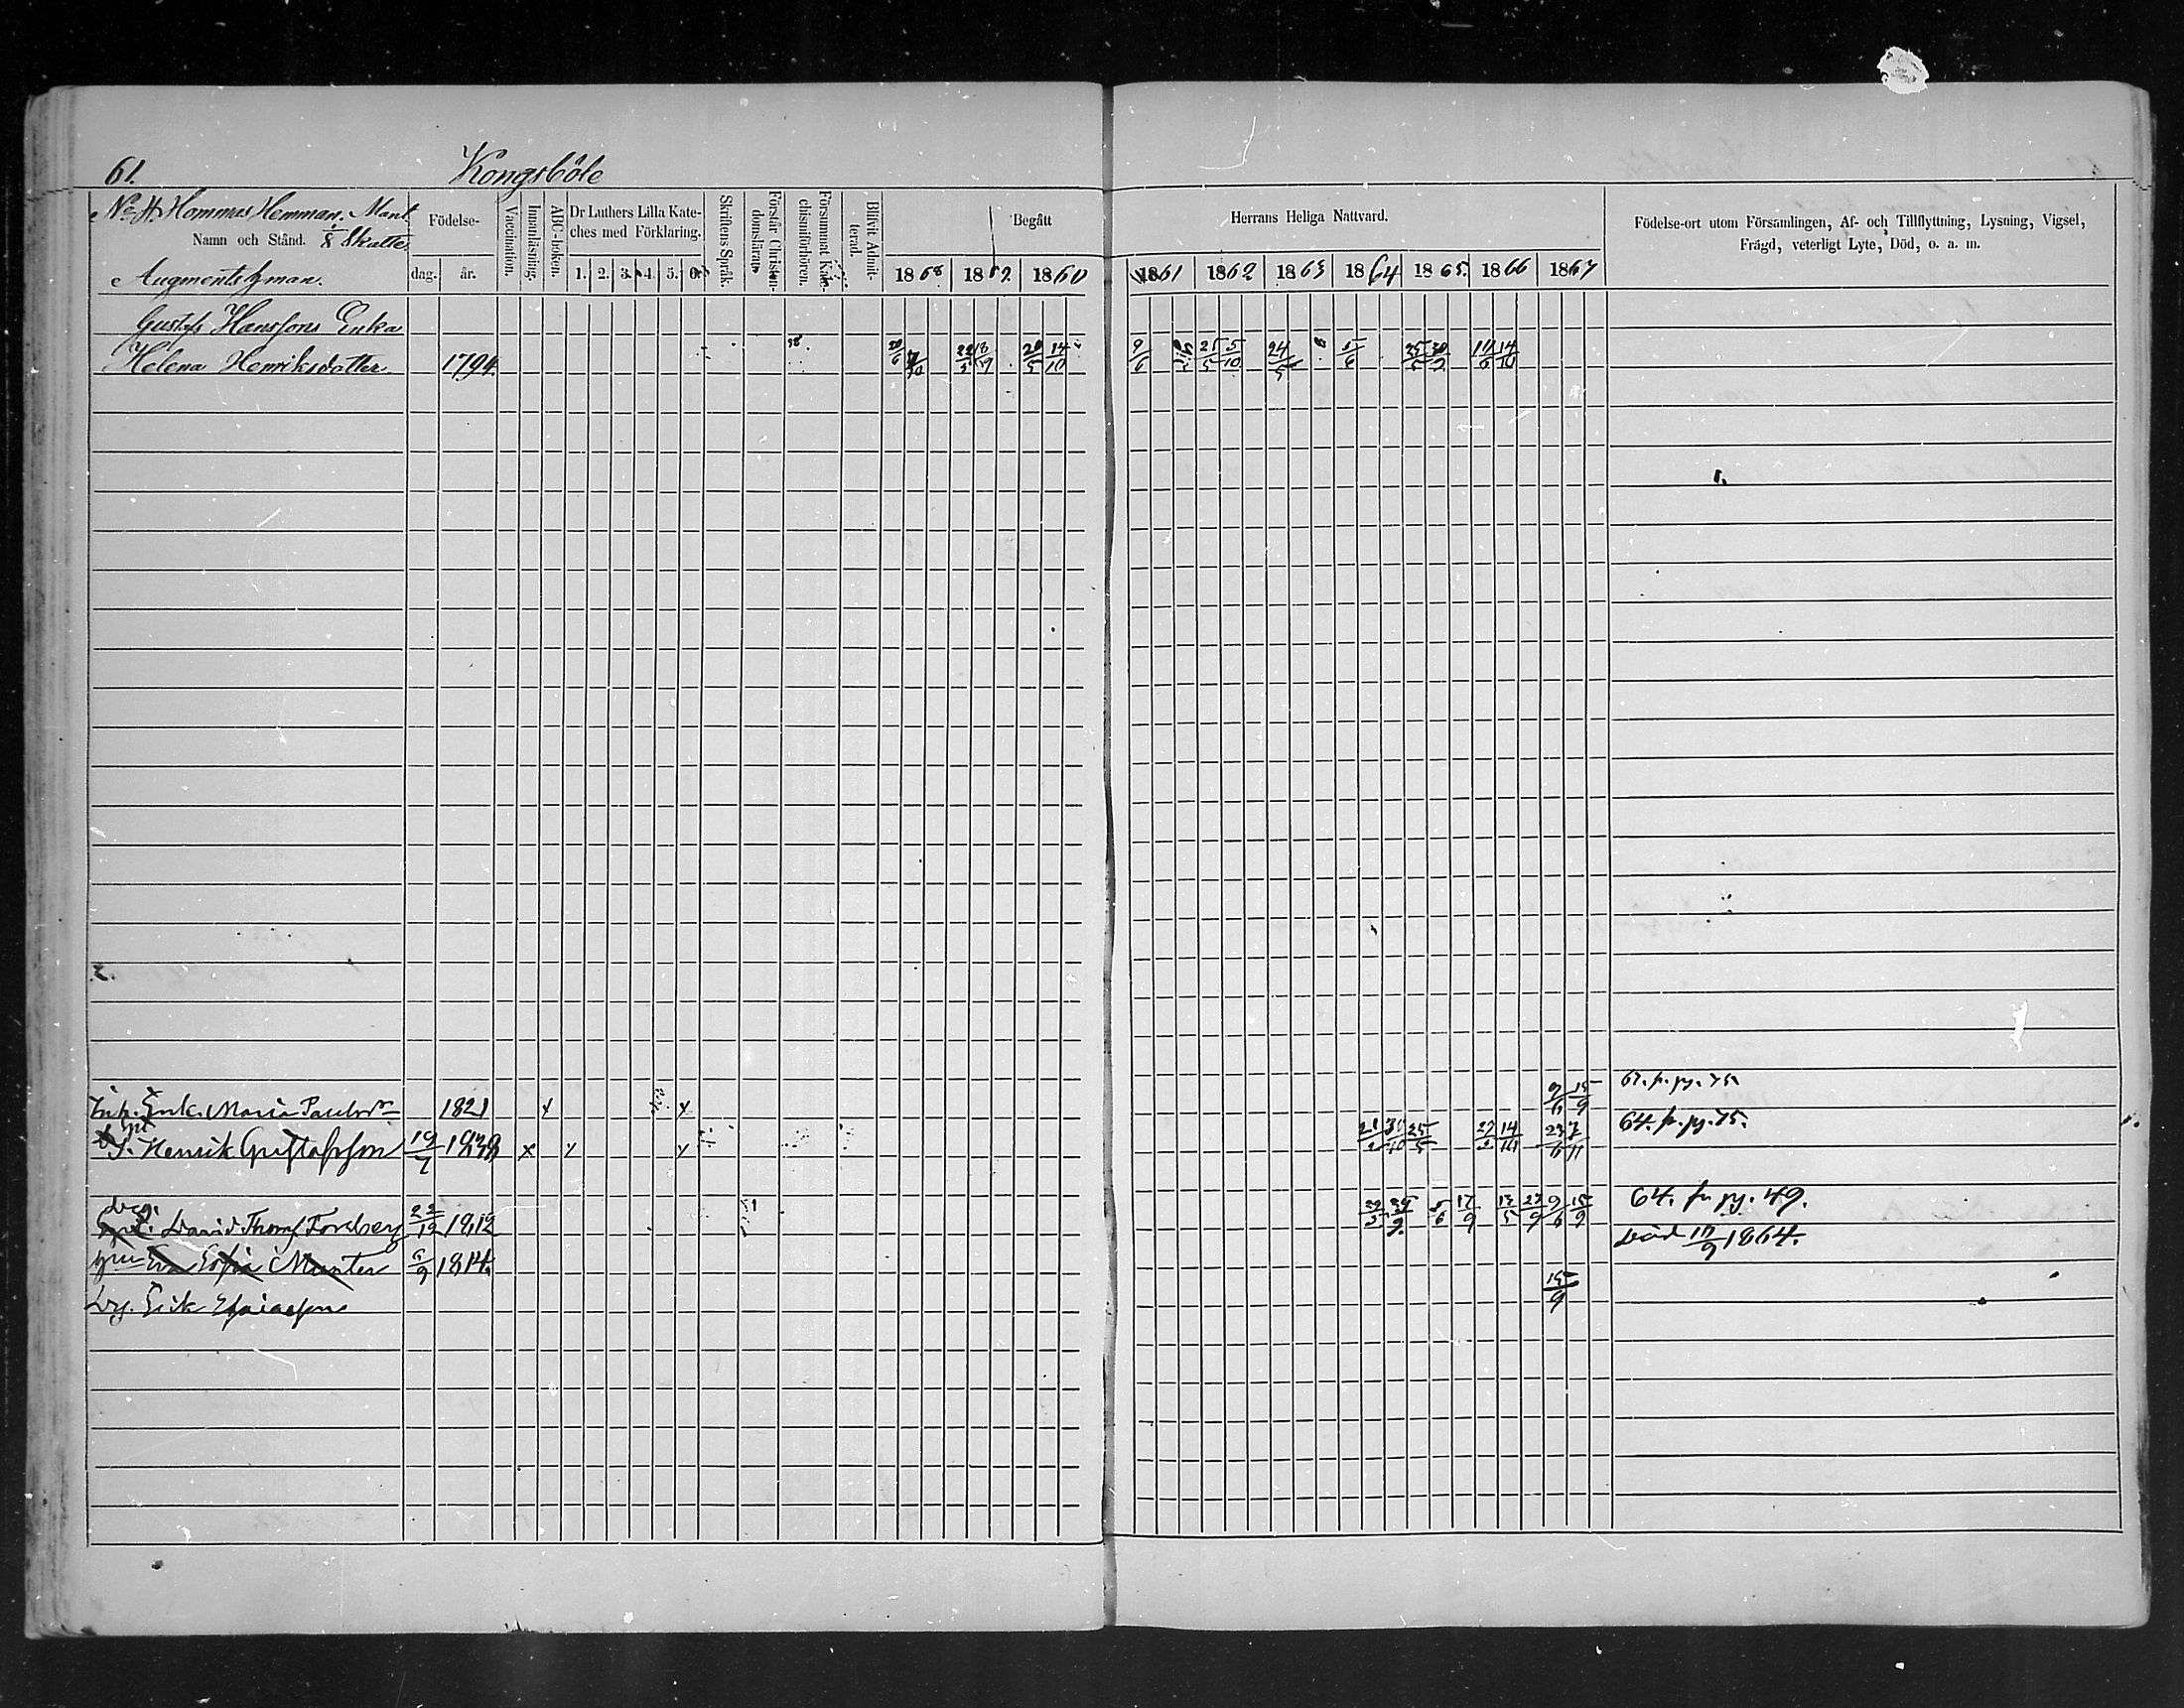 61. Kongsböle
No 4. Hommas Hemman. Mant.
Namn och Stånd. 1/8 Skatte
Augmentshman.
Födelse-
dag. år.
Vaccination.
Innanläsning.
ABC-boken.
Dr Luthers Lilla Kate-
ches med Förklaring.
1. 2. 3. 4. 5. 6.
Skriftens Språk.
Förstår Christen-
domslären.
Försummat Kate-
chismiförhören.
Blifvit Admit-
terad.
Begått Herrans Heliga Nattvard.
1858 1859. 1860 1861 1862 1863 1864 1865. 1866 1867
Födelse-ort utom Församlingen, Af- och Tillflyttning, Lysning, Vigsel,
Frägd, veterligt Lyte, Död, o. a. m.
Gustafs Hanssons Enka
Helena Henriksdotter 1794. 20/6 22/5 18/9 20/5 14/10 9/6 25/5 5/10 24/5 5/6 25/5 30/9 14/10
Enk. Maria Paulsdr 1821 x x 9/6 15/9 67. fr. pg. 75.
S. Henrik Gustafsson 19/7 x 25/5 14/10 64. fr. pg. 75.
David Thomss. Forsberg 22/12 1812 17/9 9/6 15/9 64. fr pg. 49.
Eva Sofia Munter 1814. död 1864.
Drg. Erik Esaiasson 15/9